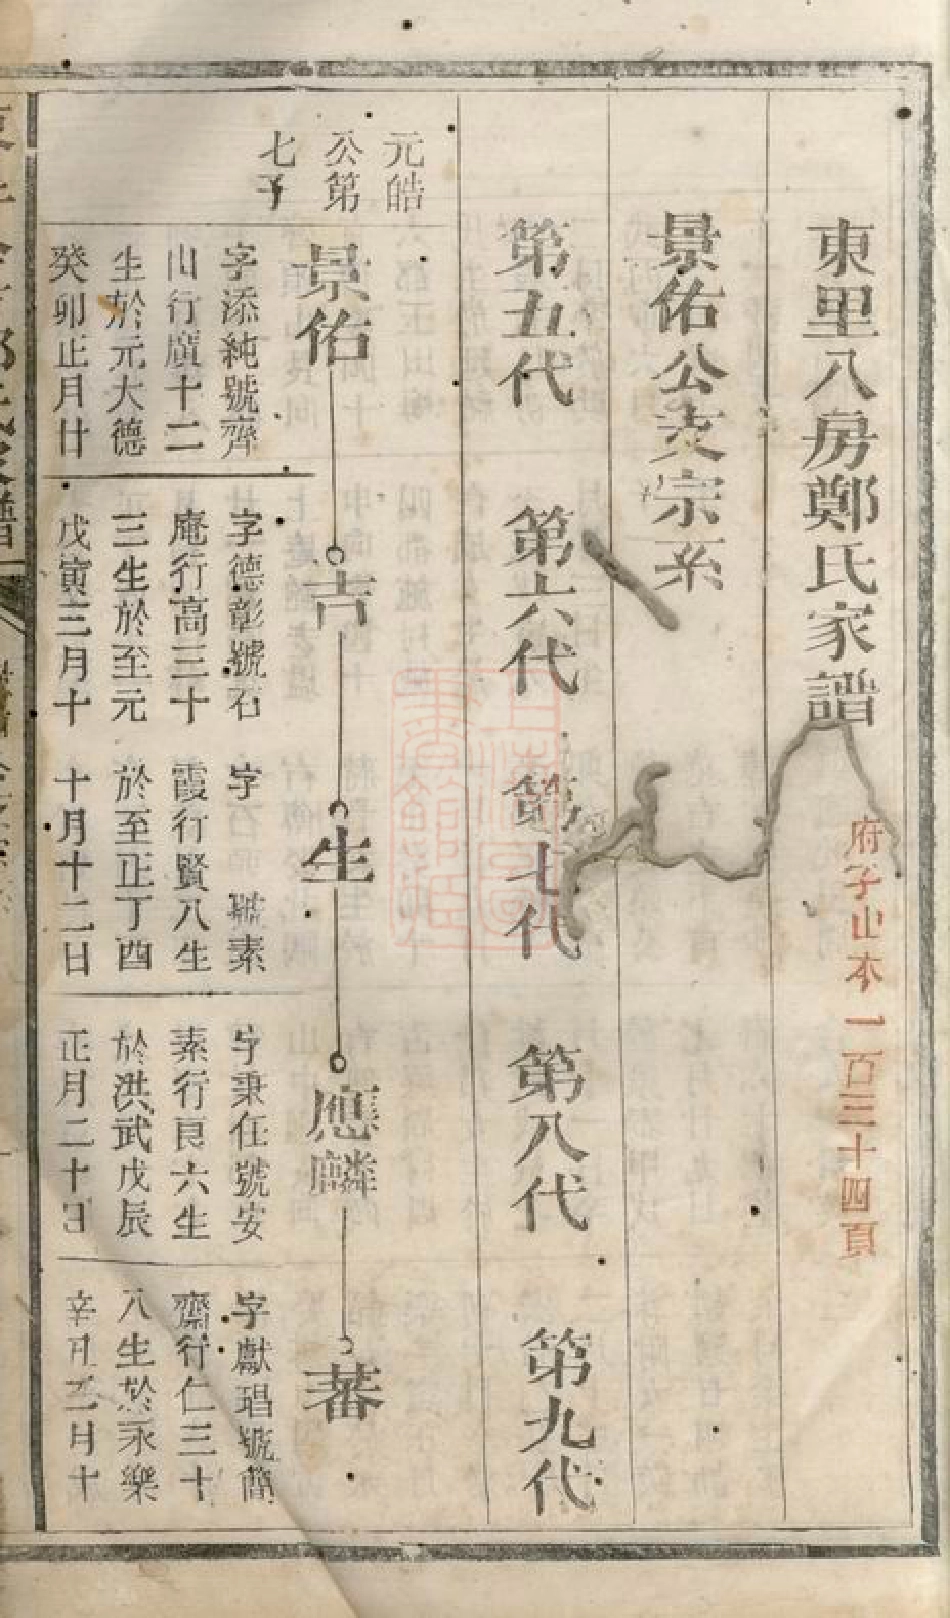 東里八房鄭氏家譜
府子山本一百三十四頁
景佑公支宗系
第五代 第六代 第七代 第八代 第九代
元皓
公第
七子
景佑
字添純號齊
山行廣十二
生於元大德
癸卯正月廿
吉
字德彰號石
庵行高三十
三生於至元
戊寅三月十
生
字 號素
霞行賢八生
於至正丁酉
十月十二日
應麟
字秉任號安
素行良六生
於洪武戊辰
正月二十日
蕃
字獻琩號簡
齋行仁三十
八生於永樂
辛丑二月十
上海圖書館藏